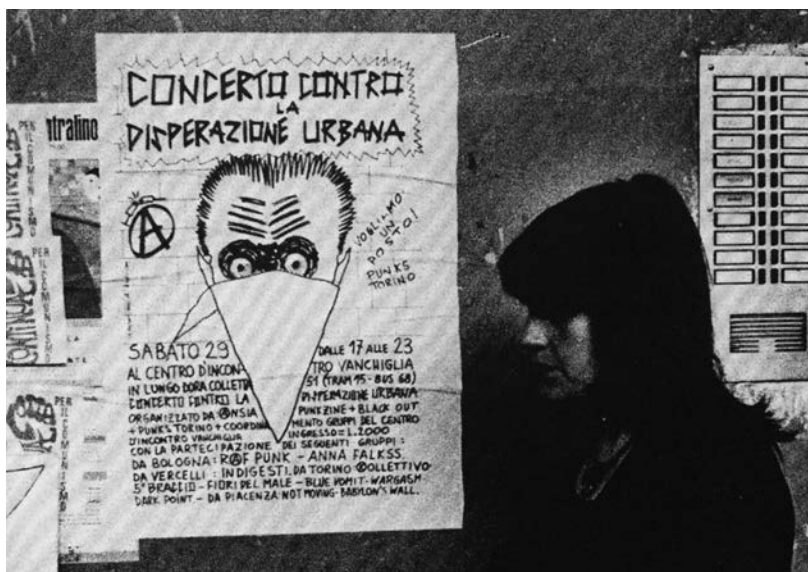 CONCERTO CONTRO
LA
DISPERAZIONE URBANA
A
VOGLIAMO
UN
POSTO!
PUNKS
TORINO
SABATO 29 DALLE 17 ALLE 23
AL CENTRO D'INCONTRO VANCHIGLIA
IN LUNGO DORA COLLETTA 51 (TRAM 15-BUS 68)
CONCERTO CONTRO LA DISPERAZIONE URBANA
ORGANIZZATO DA ANSIA PUNKZINE + BLACK OUT
+ PUNKS TORINO + COORDINAMENTO GRUPPI DEL CENTRO
D'INCONTRO VANCHIGLIA INGRESSO = L.2000
CON LA PARTECIPAZIONE DEI SEGUENTI GRUPPI:
DA BOLOGNA: RAF PUNK - ANNA FALKSS.
DA VERCELLI: INDIGESTI. DA TORINO KOLLETTIVO
5° BRACCIO - FIORI DEL MALE - BLUE VOMIT - WARGASM
DARK POINT - DA PIACENZA: NOT MOVING - BABYLON'S WALL.
ntralino
PER
IL COMUNISMO
CONTINUA
PER
IL COMUNISMO
CONTINUA
PER
IL COMUNISMO